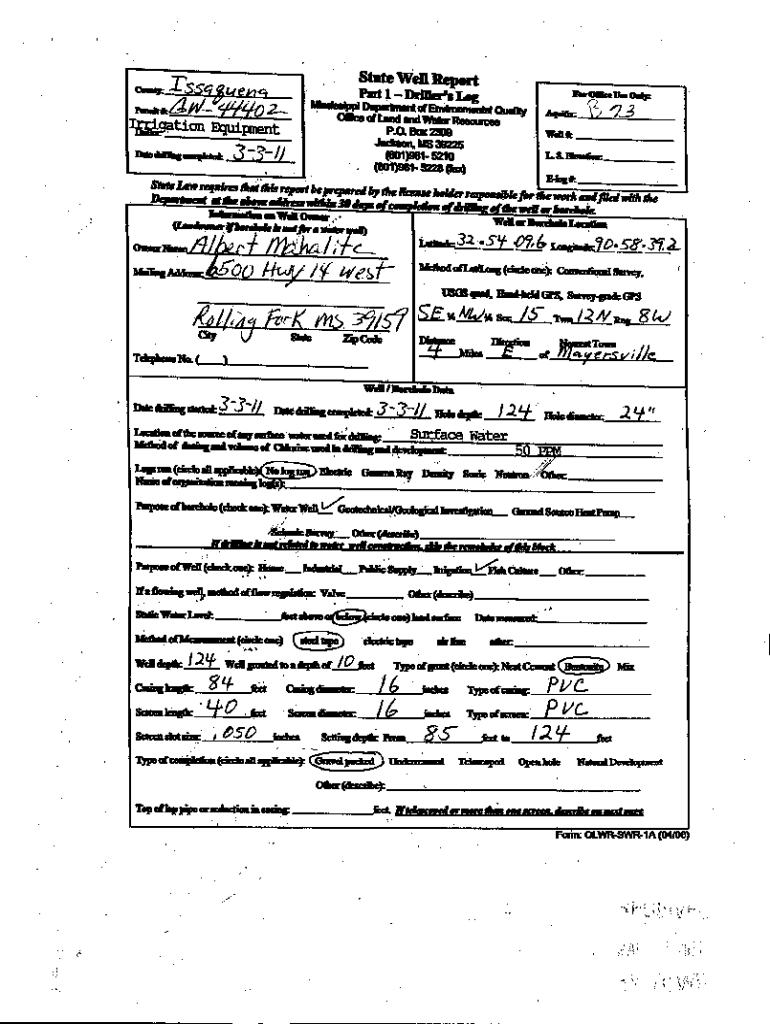 State Well Report
Part 1 – Driller's Log
Mississippi Department of Environmental Quality
Office of Land and Water Resources
P.O. Box 2309
Jackson, MS 39225
(601)961-5210
(601)961-5228 (fax)
County: Issaquena
Permit #: GW-44402
Irrigation Equipment
Date drilling completed: 3-3-11
For Office Use Only:
Aquifer: B 73
Well #:
L. S. Elevation:
E-log #:
State Law requires that this report be prepared by the license holder responsible for the work and filed with the
Department at the above address within 30 days of completion of drilling of the well or borehole.
Information on Well Owner
(Landowner if borehole is not for a water well)
Owner Name: Albert Mahalitc
Mailing Address: 6500 Hwy 14 West
Rolling Fork MS 39159
City State Zip Code
Telephone No. ( )
Well or Borehole Location
Latitude: 32.54 09.6 Longitude: 90.58.39.2
Method of Lat/Long (circle one): Conventional Survey,
USGS quad, Hand-held GPS, Survey-grade GPS
SE ¼ NW ¼ Sec 15 Twn 12N Rng 8W
Distance Direction Nearest Town
4 Miles E of Mayersville
Well / Borehole Data
Date drilling started: 3-3-11 Date drilling completed: 3-3-11 Hole depth: 124 Hole diameter: 24"
Location of the source of any surface water used for drilling: Surface Water
Method of dosing and volume of Chlorine used in drilling and development: 50 PPM
Logs run (circle all applicable): No log run Electric Gamma Ray Density Sonic Neutron Other:
Name of organization running log(s):
Purpose of borehole (check one): Water Well ✓ Geotechnical/Geological Investigation Ground Source Heat Pump
Seismic Survey Other (describe)
If drilling is not related to water well construction, skip the remainder of this block
Purpose of Well (check one): Home Industrial Public Supply Irrigation ✓ Fish Culture Other:
If a flowing well, method of flow regulation: Valve Other (describe)
Static Water Level: feet above or below (circle one) land surface Date measured:
Method of Measurement (circle one) steel tape electric tape air line other:
Well depth: 124 Well grouted to a depth of 10 feet Type of grout (circle one): Neat Cement Bentonite Mix
Casing length: 84 feet Casing diameter: 16 inches Type of casing: PVC
Screen length: 40 feet Screen diameter: 16 inches Type of screen: PVC
Screen slot size: .050 inches Setting depth: From 85 feet to 124 feet
Type of completion (circle all applicable): Gravel packed Underreamed Telescoped Open hole Natural Development
Other (describe):
Top of lap pipe or reduction in casing: feet. If telescoped or more than one screen, describe on next page
Form: OLWR-SWR-1A (04/06)